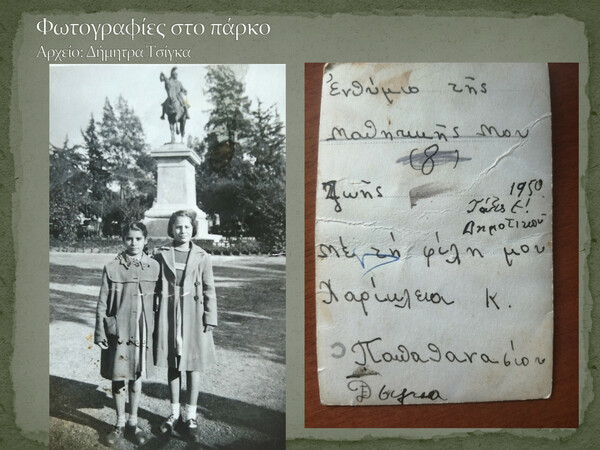 Φωτογραφίες στο πάρκο
Αρχείο: Δήμητρα Τσίγκα
Ἐνθύμιο τῆς
μαθητικῆς μου
(8)
Ζωῆς
1950
Τάξις Ε!
Δημοτικοῦ
με τή φίλη μου
Χαρίκλεια Κ.
Παπαθανασίου